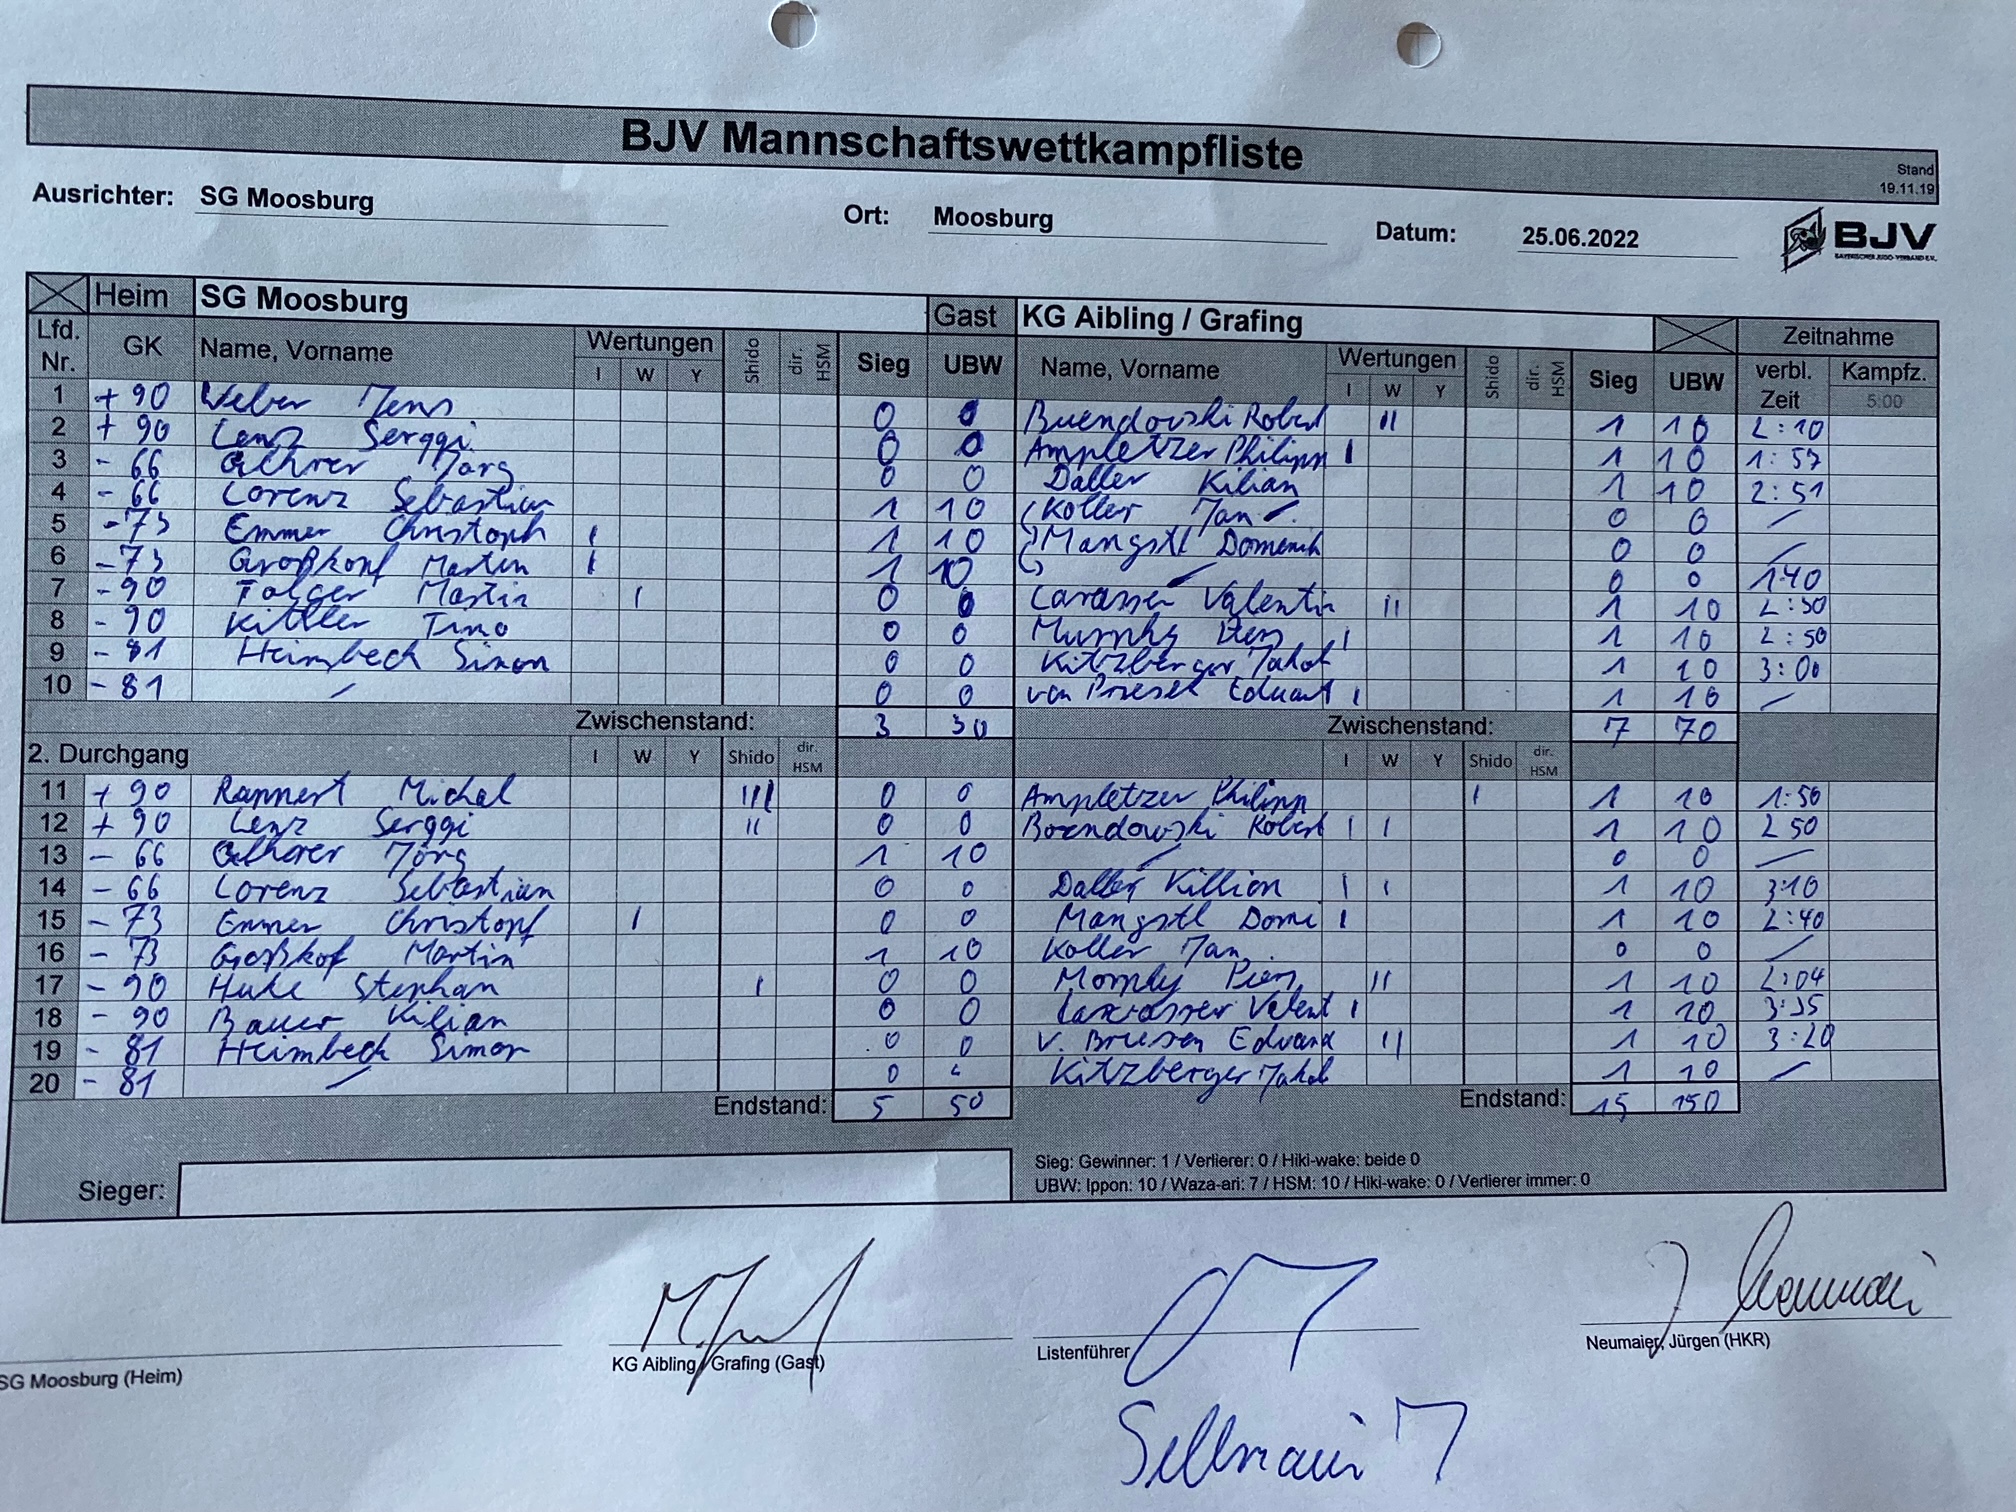 BJV Mannschaftswettkampfliste
Stand
19.11.19
Ausrichter: SG Moosburg Ort: Moosburg Datum: 25.06.2022
BJV
BAYERISCHER JUDO-VERBAND E.V.
Heim SG Moosburg Gast KG Aibling / Grafing Zeitnahme
Lfd. Nr. GK Name, Vorname Wertungen I W Y Shido dir. HSM Sieg UBW Name, Vorname Wertungen I W Y Shido dir. HSM Sieg UBW verbl. Zeit Kampfz. 5:00
1 +90 Weber Jens 0 0 Buendowski Robert II 1 10 2:10
2 +90 Lenz Serggi 0 0 Ampletzer Philipp I 1 10 1:57
3 -66 Jörg 0 0 Daller Kilian 1 10 2:51
4 -66 Lorenz Sebastian 1 10 Koller Jan 0 0 /
5 -73 Emmer Christoph I 1 10 Mangstl Domenik 0 0 /
6 -73 Großkopf Martin I 1 10 / 0 0 1:40
7 -90 Folger Martin I 0 0 Valentin II 1 10 2:50
8 -90 Kittler Timo 0 0 Murphy I 1 10 2:50
9 -81 Heimbeck Simon 0 0 Kitzberger Jakob 1 10 3:00
10 -81 / 0 0 von Eduart I 1 10 /
Zwischenstand: 3 30 Zwischenstand: 7 70
2. Durchgang I W Y Shido dir. HSM I W Y Shido dir. HSM
11 +90 Rannert Michal III 0 0 Ampletzer Philipp I 1 10 1:50
12 +90 Lenz Serggi II 0 0 Robert I I 1 10 2 50
13 -66 Jörg 1 10 / 0 0 /
14 -66 Lorenz Sebastian 0 0 Daller Killian I I 1 10 3:10
15 -73 Emmer Christopf I 0 0 Mangstl Domi I 1 10 2:40
16 -73 Großkof Martin 1 10 Koller Jan 0 0 /
17 -90 Huke Stephan I 0 0 II 1 10 2:04
18 -90 Bauer Kilian 0 0 Valent I 1 10 3:35
19 -81 Heimbeck Simon 0 0 v. Briesen Edvard II 1 10 3:20
20 -81 / 0 Kitzberger Jakob 1 10 /
Endstand: 5 50 Endstand: 15 150
Sieger:
Sieg: Gewinner: 1 / Verlierer: 0 / Hiki-wake: beide 0
UBW: Ippon: 10 / Waza-ari: 7 / HSM: 10 / Hiki-wake: 0 / Verlierer immer: 0
SG Moosburg (Heim) KG Aibling / Grafing (Gast) Listenführer Neumaier, Jürgen (HKR)